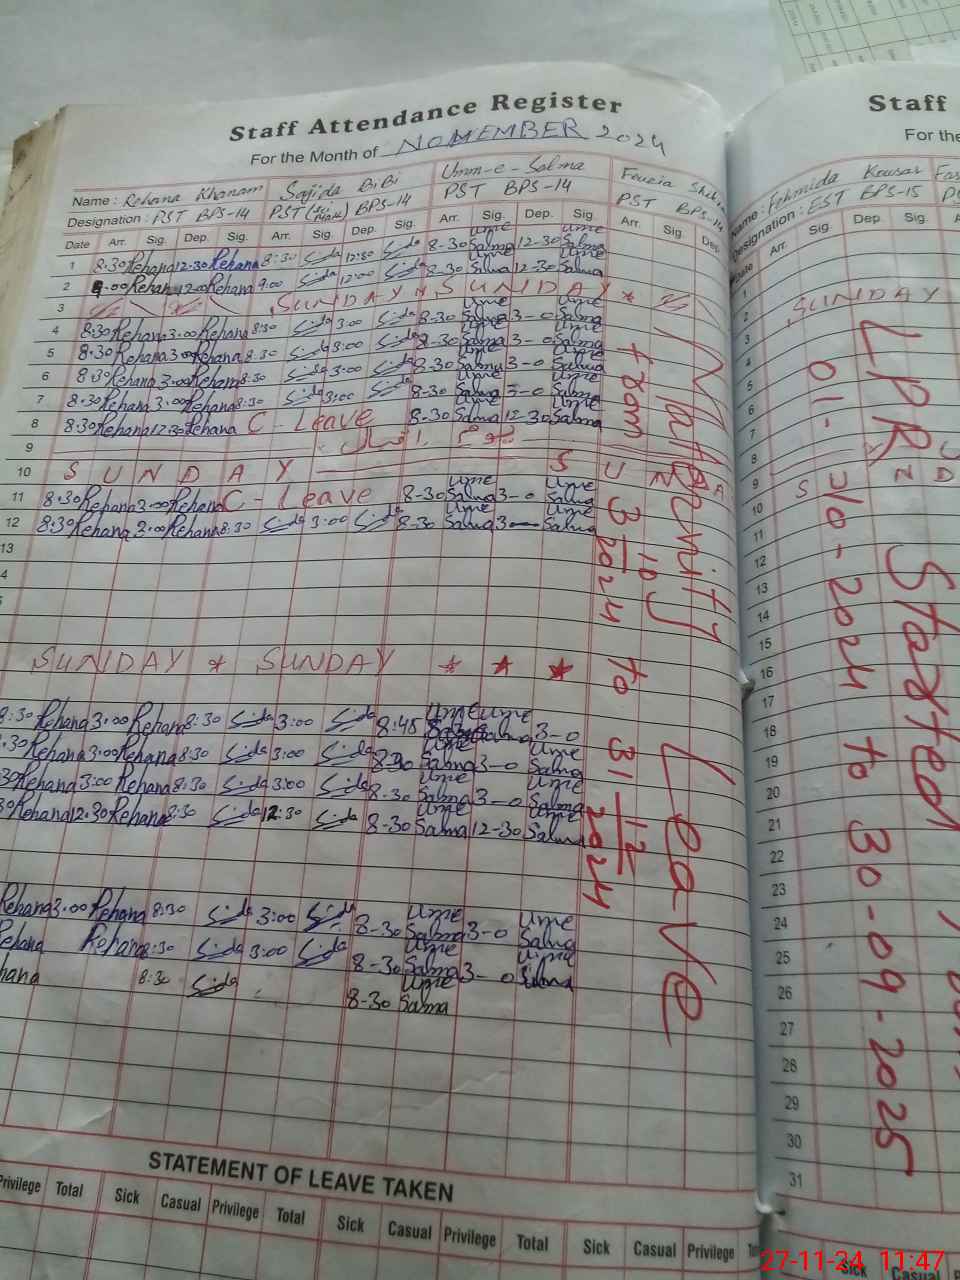 Staff Attendance Register
For the Month of NOMEMBER 2024
Name : Rehana Khanam Sajida BiBi Umm-e-Salma Fouzia
Designation : PST BPS-14 PST BPS-14 PST BPS-14 PST BPS-14
Date Arr. Sig. Dep. Sig. Arr. Sig. Dep. Sig. Arr. Sig. Dep. Sig. Arr. Sig. Dep.
1 8:30 Rehana 12.30 Rehana 8:30 Sida 12:30 Sida 8-30 Ume Salma 12-30 Ume Salma
2 9.00 Rehana 12.00 Rehana 9:00 Sida 12:00 Sida 8-30 Ume Salma 12-30 Ume Salma
3 SUNDAY * SUNDAY *
4 8:30 Rehana 3.00 Rehana 8:30 Sida 3:00 Sida 8-30 Ume Salma 3-0 Ume Salma
5 8:30 Rehana 3.00 Rehana 8:30 Sida 3:00 Sida 8-30 Ume Salma 3-0 Ume Salma
6 8:30 Rehana 3.00 Rehana 8:30 Sida 3:00 Sida 8-30 Ume Salma 3-0 Ume Salma
7 8:30 Rehana 3.00 Rehana 8:30 Sida 3:00 Sida 8-30 Ume Salma 3-0 Ume Salma
8 8:30 Rehana 12.30 Rehana C - Leave 8-30 Ume Salma 12-30 Ume Salma
9
10 SUNDAY S U N
11 8:30 Rehana 3.00 Rehana C - Leave 8-30 Ume Salma 3-0 Ume Salma
12 8:30 Rehana 3.00 Rehana 8:30 Sida 3:00 Sida 8-30 Ume Salma 3 Salma
13
4
SUNDAY * SUNDAY * * *
8:30 Rehana 3.00 Rehana 8:30 Sida 3:00 Sida 8:45 Ume Salma Ume Salma 3-0
.30 Rehana 3:00 Rehana 8:30 Sida 3:00 Sida 8-30 Ume Salma 3-0 Ume Salma
30 Rehana 3:00 Rehana 8:30 Sida 3:00 Sida 8-30 Ume Salma 3-0 Ume Salma
30 Rehana 12.30 Rehana 8:30 Sida 12:30 Sida 8-30 Ume Salma 12-30 Ume Salma
Rehana 3.00 Rehana 8:30 Sida 3:00 Sida 8-30 Ume Salma 3-0 Ume Salma
Rehana Rehana 8:30 Sida 3:00 Sida 8-30 Ume Salma 3-0 Ume Salma
hana 8:30 Sida 8-30 Ume Salma
Maternity Leave
from 3 10 2024 to 31 12 2024
STATEMENT OF LEAVE TAKEN
Privilege Total Sick Casual Privilege Total Sick Casual Privilege Total Sick Casual Privilege
Staff
For the
Name : Fehmida Kousar
Designation : EST BPS-15
Date Arr. Sig. Dep. Sig.
1
2 SUNDAY
3
4
5
6
7
8
9 S
10
11
12
13
14
15
16
17
18
19
20
21
22
23
24
25
26
27
28
29
30
31
LPR Started
01-10-2024 to 30-09-2025
Sick Casual
27-11-24 11:47